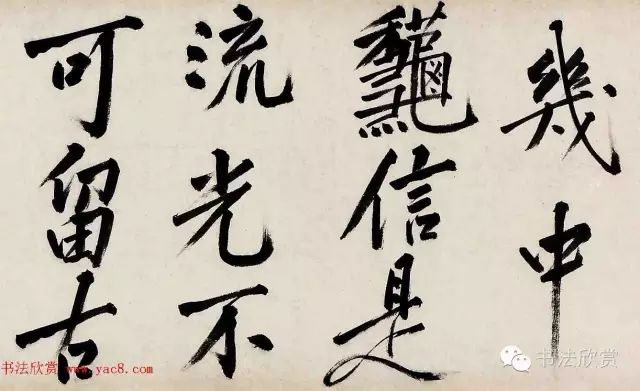 幾中
龝信是
流光不
可留古
书法欣赏 www.yac8.com
书法欣赏